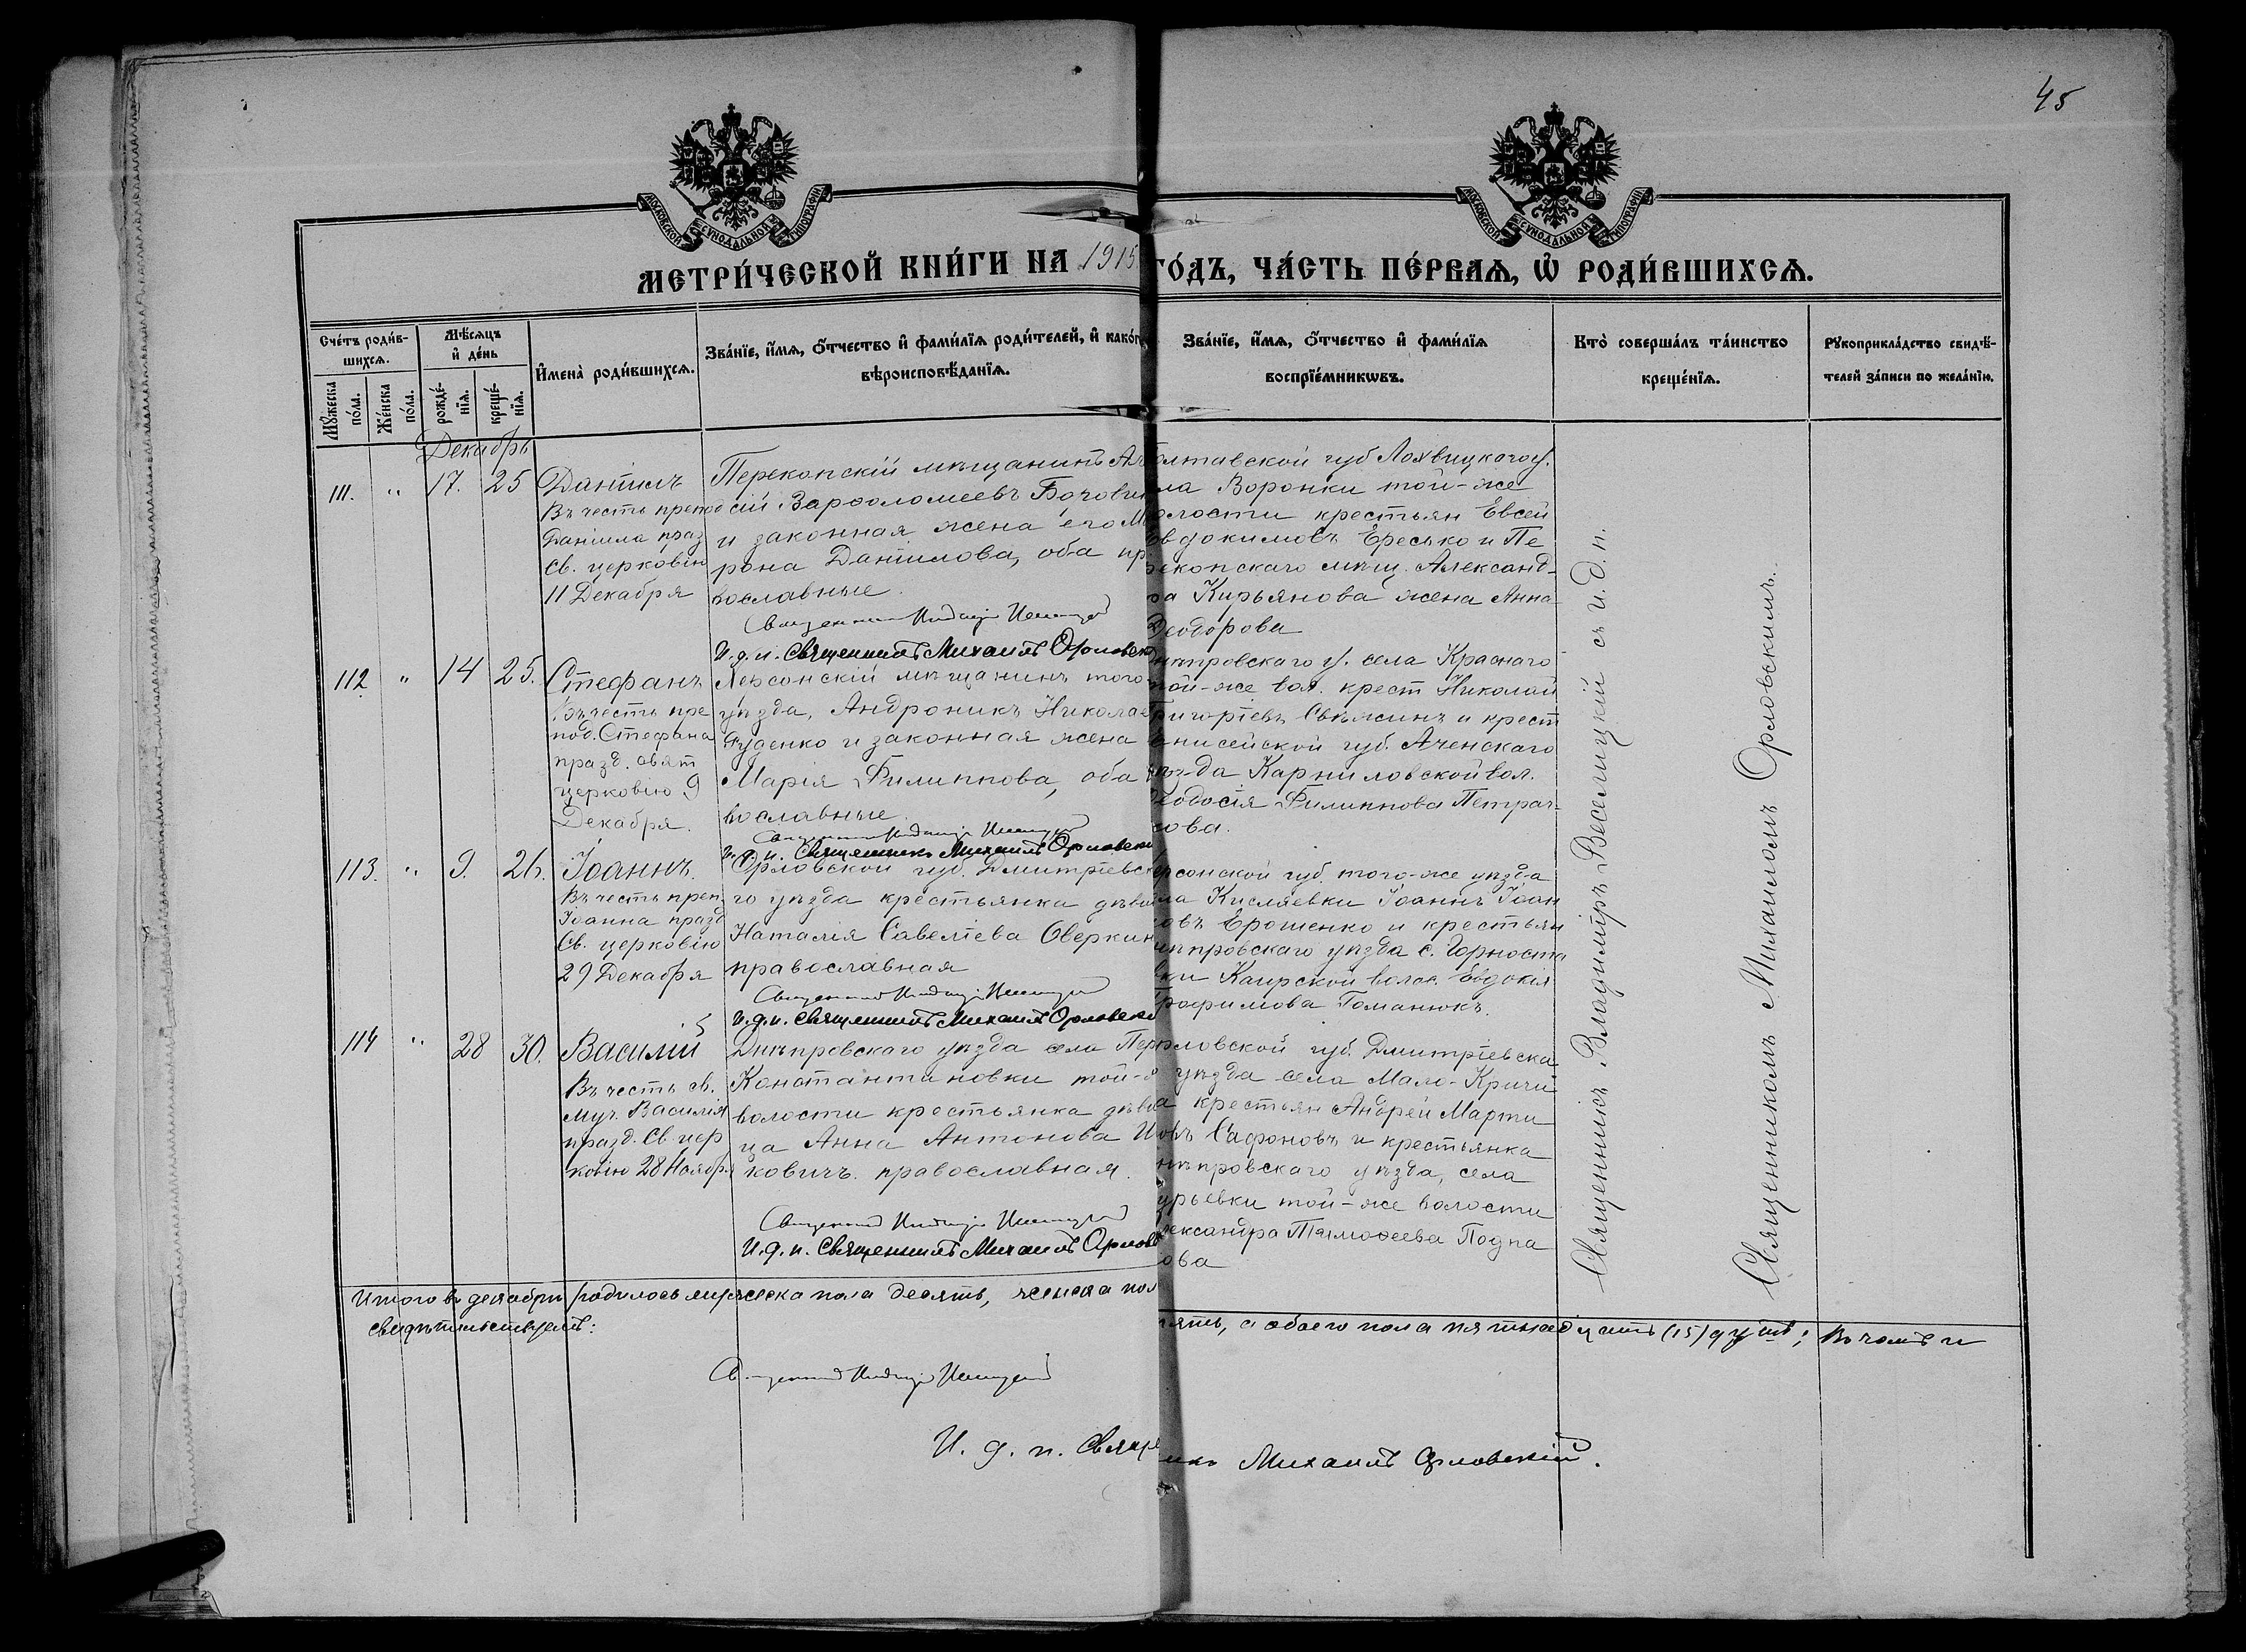 45
МОСКОВСКОЙ СУНОДАЛЬНОЙ ТИПОГРАФІИ
МОСКОВСКОЙ СУНОДАЛЬНОЙ ТИПОГРАФІИ
МЕТРИ́ЧЕСКОЙ КНИ́ГИ НА 1915 ГО́ДЪ, ЧА́СТЬ ПЕ́РВАѦ, Ѡ҆ РОДИ́ВШИХСѦ.
Сче́тъ роди́в-
шихсѧ.
Мꙋ́жеска по́ла.
Же́нска по́ла.
Мѣ́сѧцъ
и҆ де́нь
рожде́-
нїѧ.
креще́-
нїѧ.
И҆мена̀ роди́вшихсѧ.
Зва́нїе, и҆́мѧ, ѻ҆́тчество и҆ фами́лїѧ роди́телей, и҆ како́г
вѣроисповѣ́данїѧ.
Зва́нїе, и҆́мѧ, ѻ҆́тчество и҆ фами́лїѧ
воспрїе́мникѡвъ.
Кто̀ соверша́лъ та́инство
креще́нїѧ.
Рꙋкоприкла́дство свидѣ́-
телей за́писи по жела́нїю.
Декабрь
111. " 17. 25
Даніилъ
Въ честь препод
Даніила праз
Св. церковію
11 Декабря
Перекопскій мѣщанинъ
сій Варфоломеевъ
и законная жена его М
рона Даніилова, оба пр
вославные.
Священникъ
И. д. п. Священникъ Михаилъ Орловск
олтавской губ Лохвицкаго у.
ла Воронки той-же
олости крестьян Евсей
Евдокимовъ Ересько и Пе
рекопскаго мѣщ. Александ-
ра Кирьянова жена Анна
Ѳеодорова
112. " 14 25.
Стефанъ
Въ честь пре
под. Стефана
празд. свят
церковію 9
Декабря.
Херсонскій мѣщанинъ того
уѣзда, Андроникъ Николае
Руденко и законная жена
Марія Филиппова, оба
вославные.
Священникъ
И. д. п. Священникъ Михаилъ Орловск
нѣпровскаго у. села Краснаго
той-же вол. крест Николай
Григоріевъ Свѣжинъ и крест
Енисейской губ. Аченскаго
уѣзда Карниловской вол.
Ѳеодосія Филиппова Петрач-
кова.
113. " 9. 26.
Іоаннъ.
Въ честь преп.
Іоанна празд
Св. церковію
29 Декабря
Орловской губ. Дмитріевск
го уѣзда крестьянка дѣви
Наталія Савеліева Оверкин
православная
Священникъ
И. д. п. Священникъ Михаилъ Орловск
ерсонской губ. того-же уѣзда
ла Кисляевки Іоаннъ Іоан
овъ Ерошенко и крестьян
нѣпровскаго уѣзда с. Горноста
вки Каирской волос. Евдокія
Трофимова Томанюкъ.
114 " 28 30.
Василій
Въ честь св.
муч. Василія
празд. Св. цер
ковію 28 Ноября
Днѣпровскаго уѣзда села Пер
Константиновки той-ж
волости крестьянка дѣви
ца Анна Антонова
ковичъ. православная.
Священникъ
И. д. п. Священникъ Михаилъ Орлов
рловской губ. Дмитріевска
уѣзда села Мало-Кричи
а крестьян Андрей Марти
овъ Сафоновъ и крестьянка
нѣпровскаго уѣзда, села
урьевки той-же волости
лександра Тимоѳеева Подпа
ова
Священникъ Владиміръ Веселицкій съ и. д. п.
Священникомъ Михаиломъ Орловскимъ.
Итого въ декабрѣ родилось мужеска пола десять, женска пол
ять, а обоего пола пятнадцать (15) душъ; въ чемъ и
свидѣтельствуемъ:
Священникъ
И. д. п. Священ
икъ Михаилъ Орловскій.